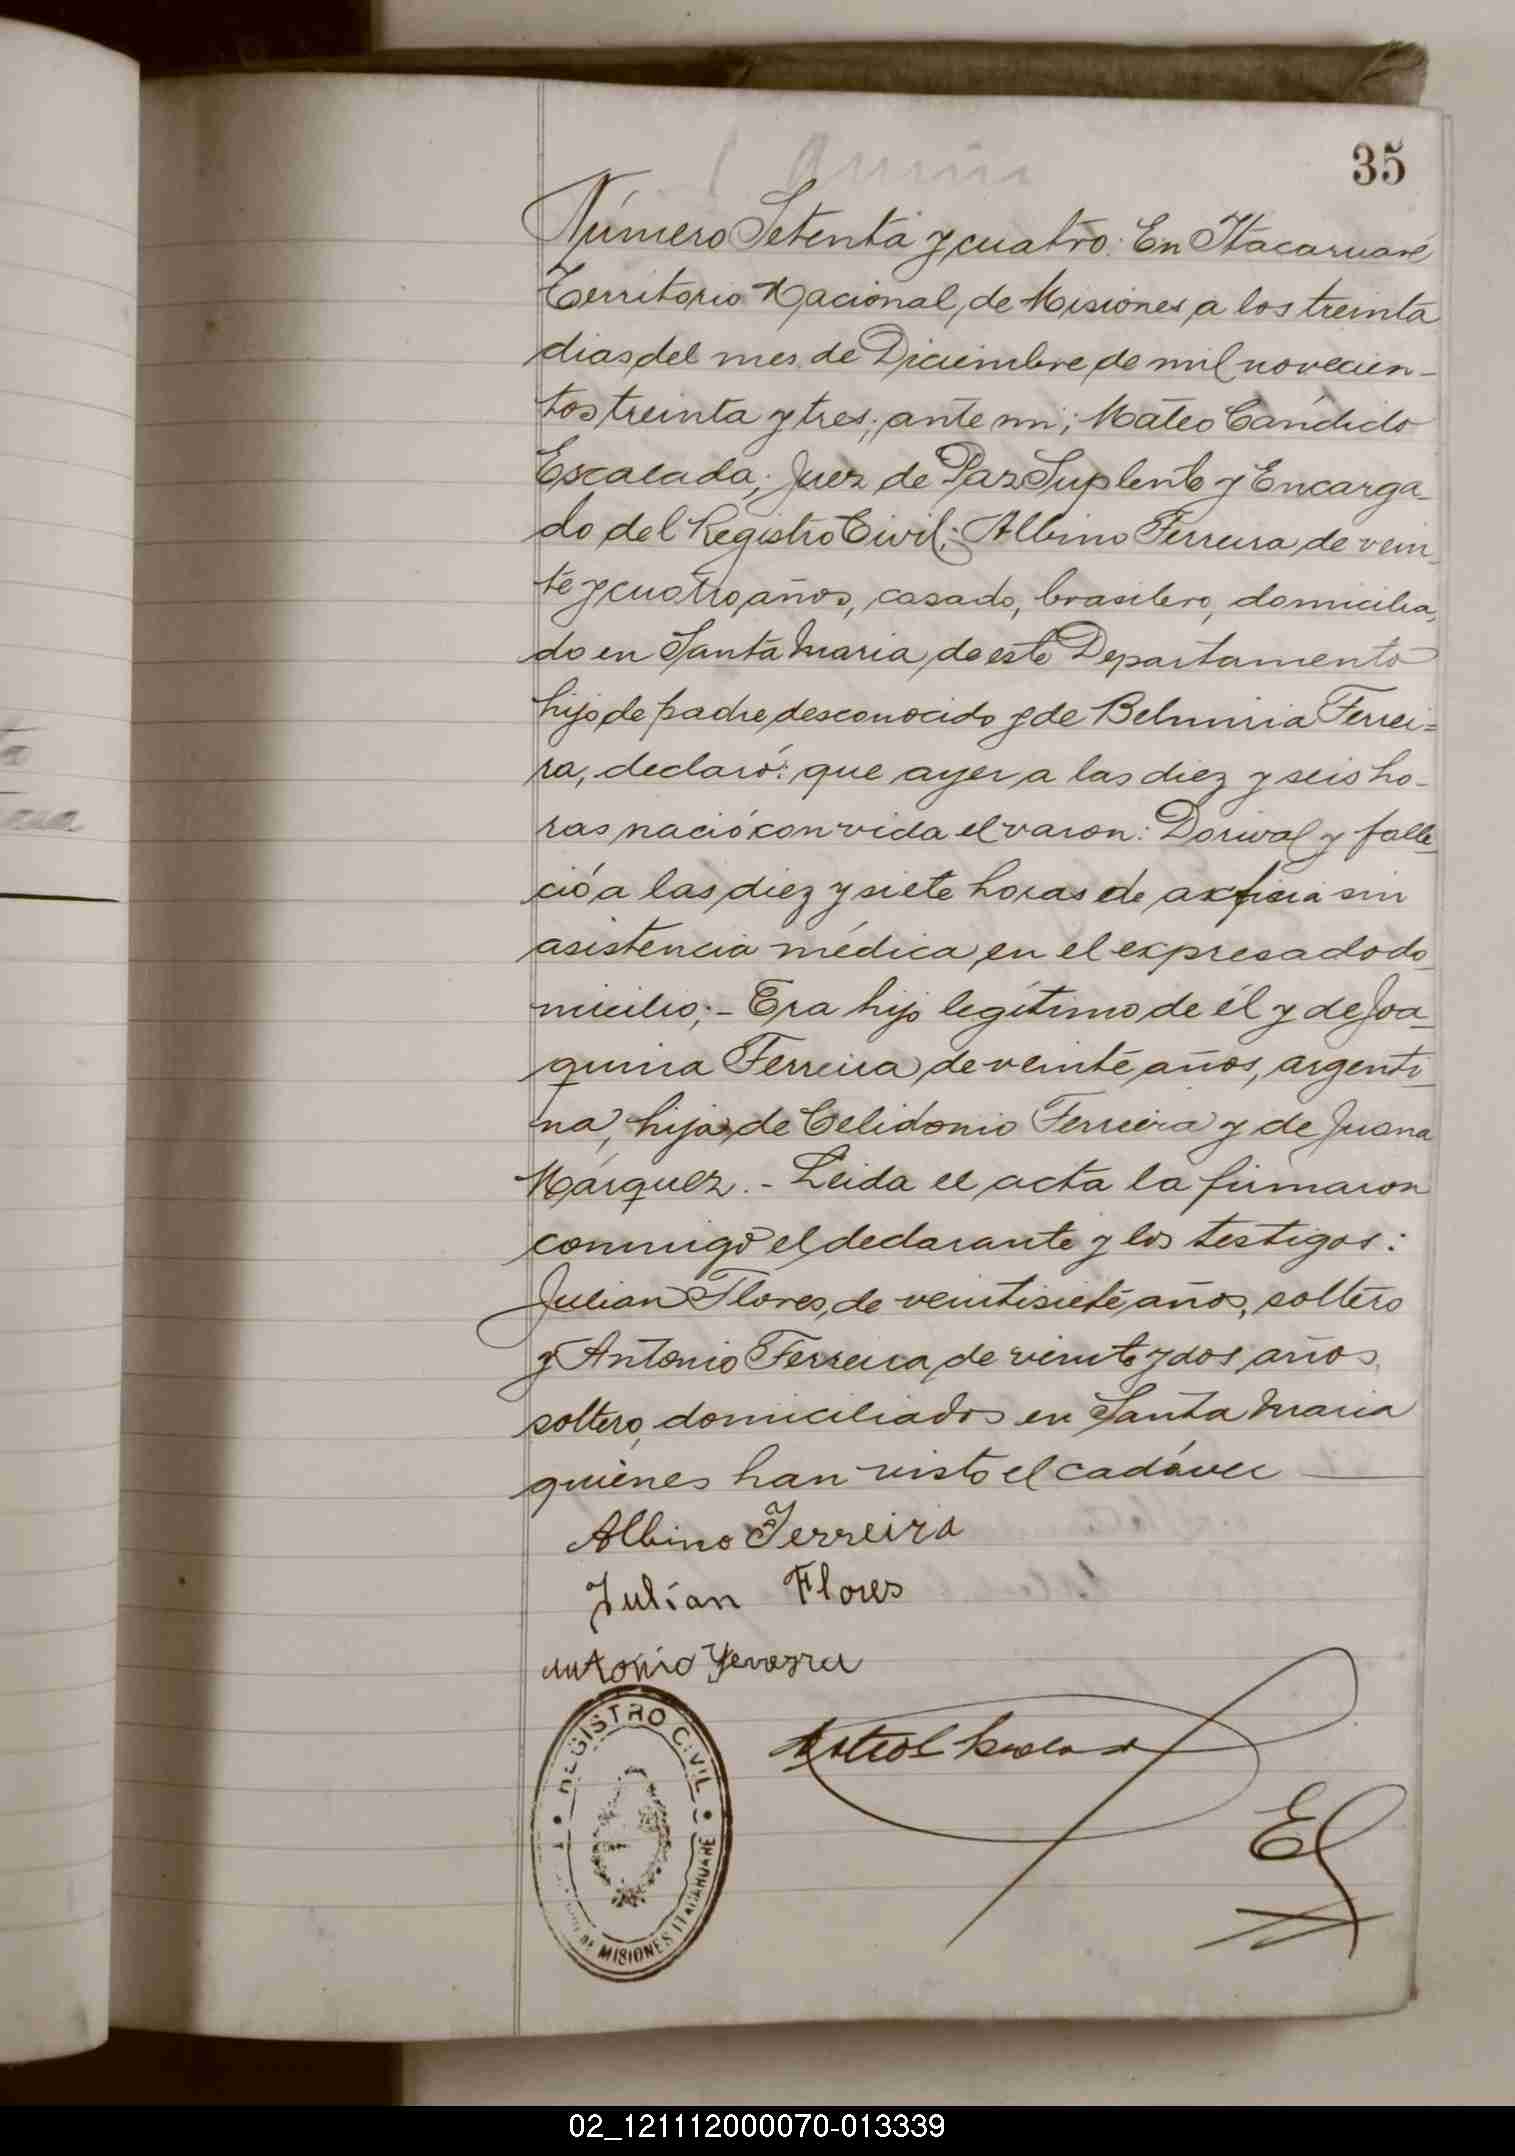 35
Número Setenta y cuatro: En Itacaruaré
Territorio Nacional de Misiones a los treinta
dias del mes de Diciembre de mil novecien-
tos treinta y tres; ante mi; Mateo Cándido
Escalada; Juez de Paz Suplente y Encarga-
do del Registro Civil; Albino Ferreira de vein-
te y cuatro años, casado, brasilero, domicilia-
do en Santa Maria de este Departamento
hijo de padre desconocido y de Belmiria Ferrei=
ra, declaró: que ayer a las diez y seis ho-
ras nació con vida el varon: Dorival y falle-
ció a las diez y siete horas de axficia sin
asistencia médica en el expresado do-
micilio;- Era hijo legítimo de él y de Joa-
quina Ferreira de veinte años, argenti-
na, hija de Celidonio Ferreira y de Juana
Márquez.- Leida el acta la firmaron
conmigo el declarante y los testigos:
Julian Flores, de veintisiete años, soltero
y Antonio Ferreira de veinte y dos años,
soltero, domiciliados en Santa Maria
quiénes han visto el cadáver
Albino Ferreira
Julían Flores
Antonio
REGISTRO CIVIL
DE MISIONES ITACARUARE
02_121112000070-013339